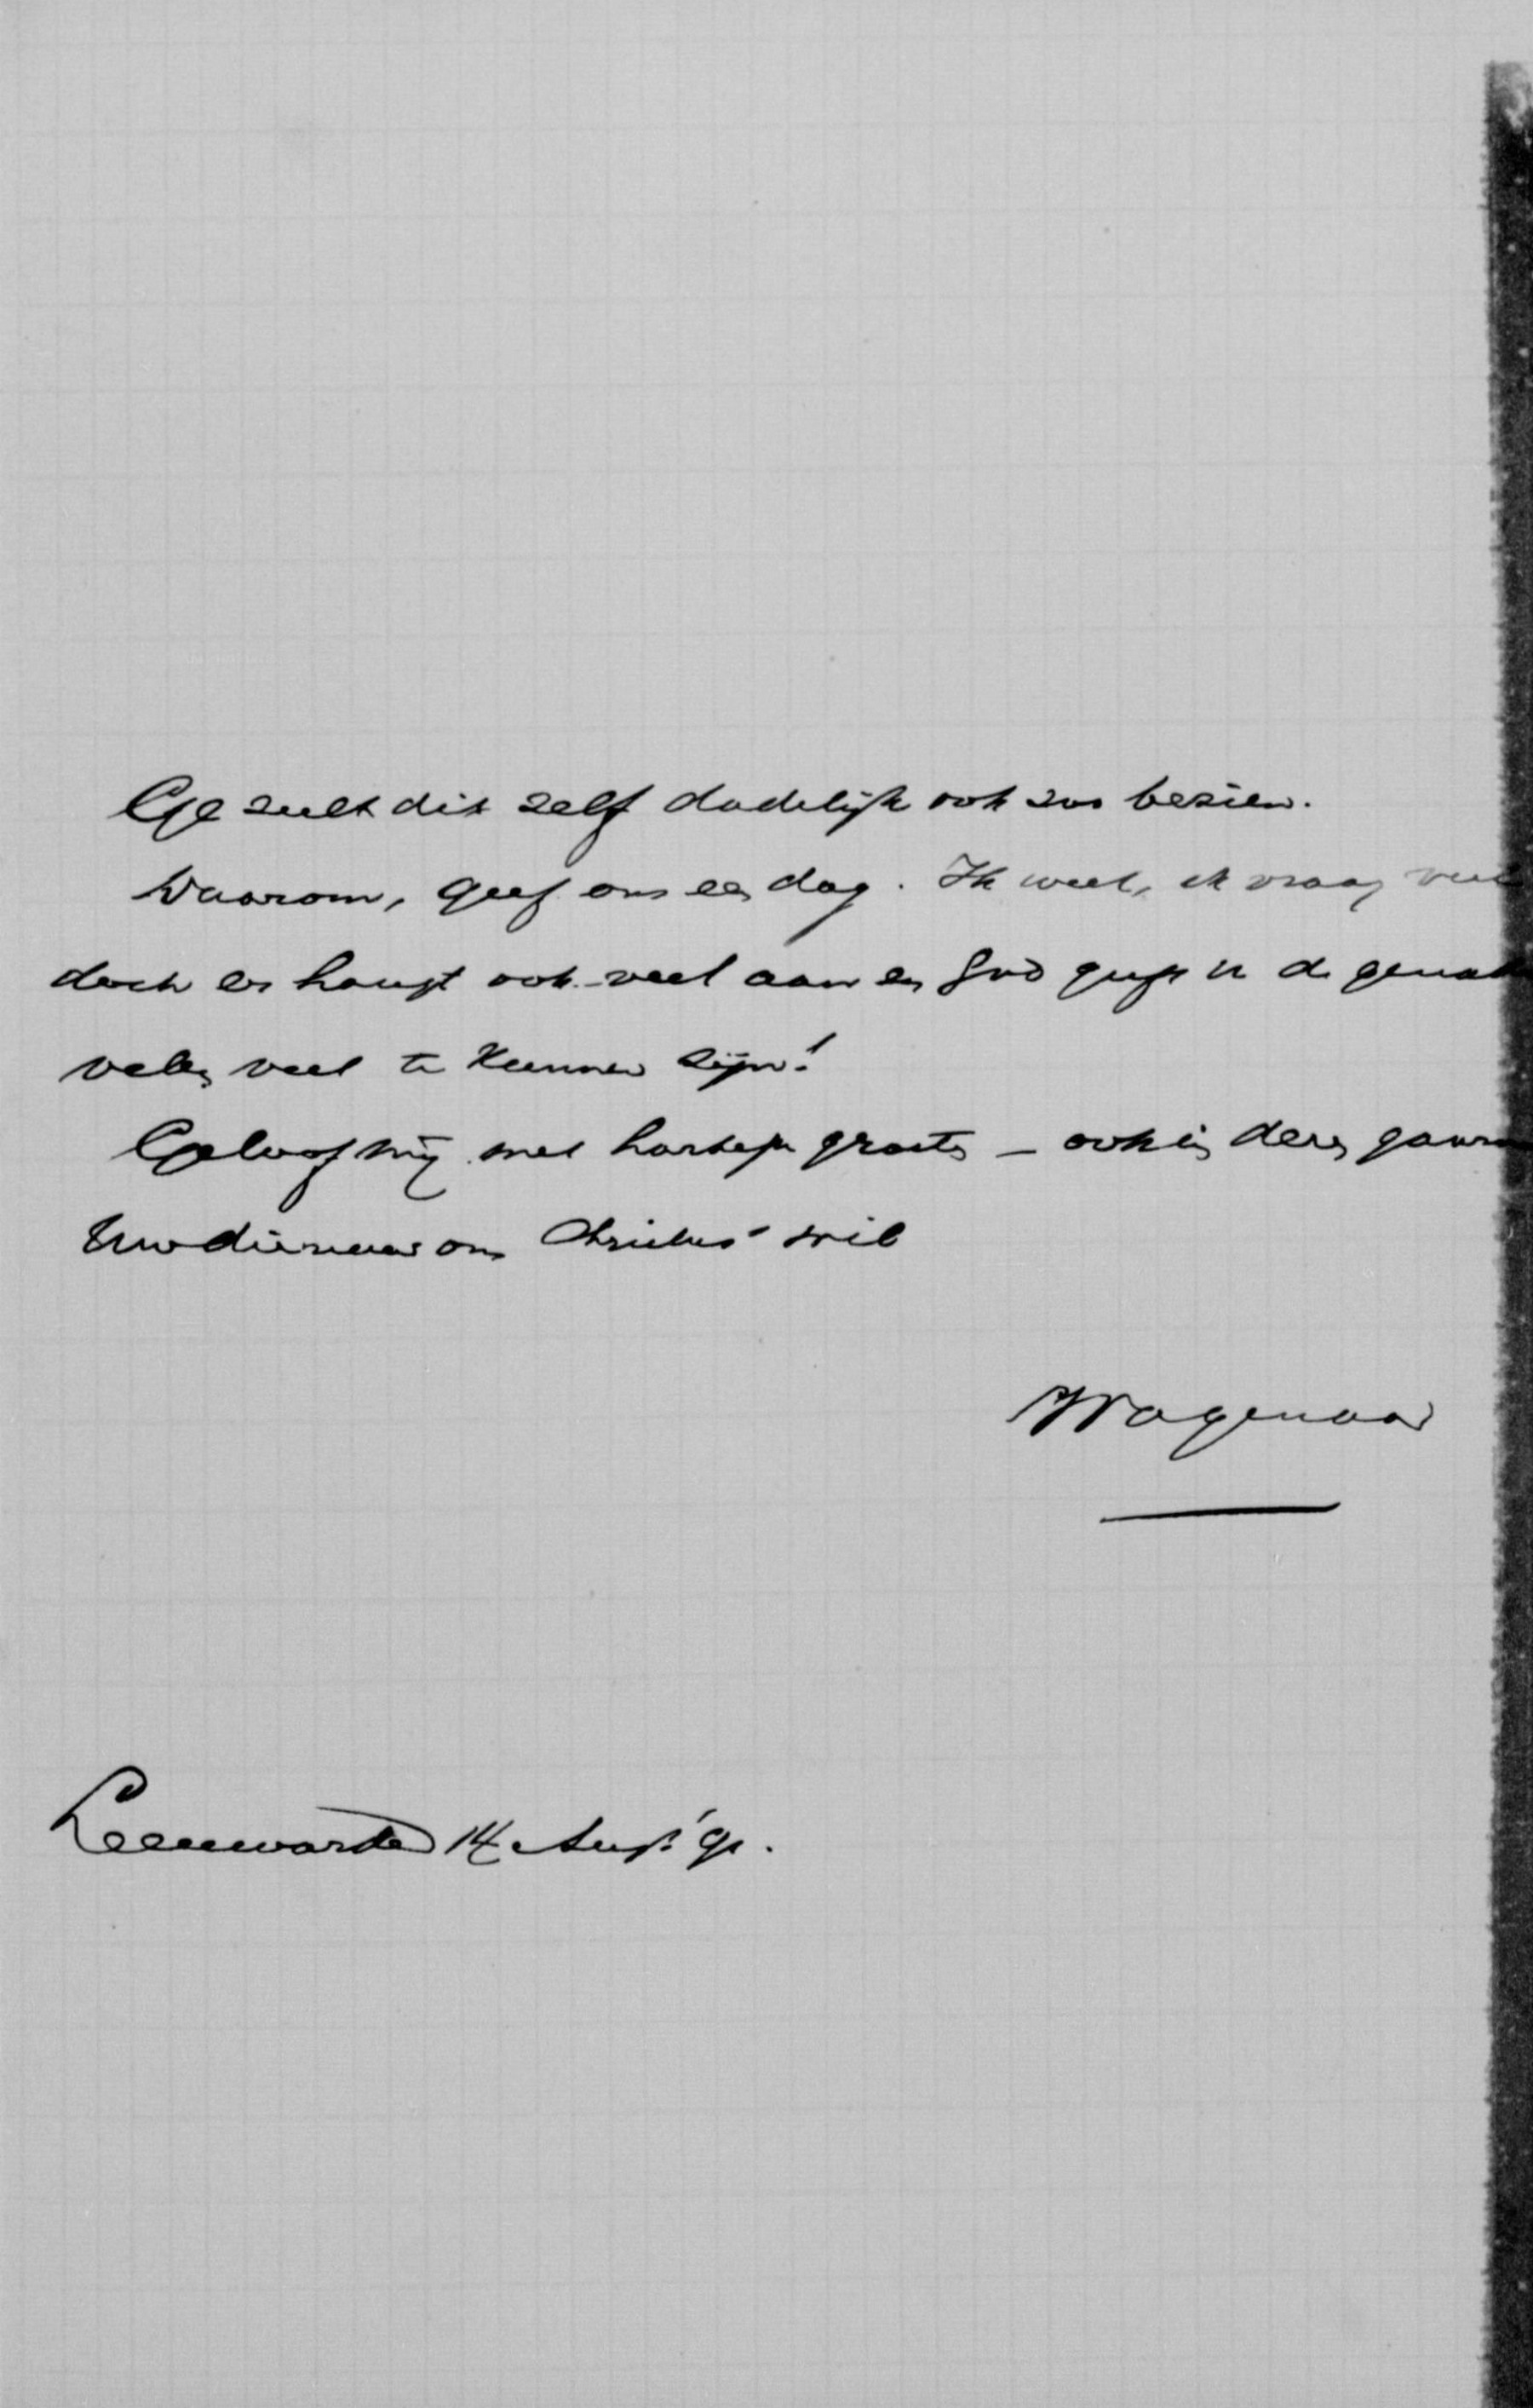 Ge zult dit zelf dadelijk ook zoo bezien.
Waarom, geef ons een dag. Ik weet, ik vraag veel
doch er hangt ook veel aan en God geeft u de genade
velen veel te kunnen zijn!
Geloof mij met hartelijke groete – ook in dezen gaarne
Uw dienaar om Christus' wil
Wagenaar
Leeuwarden 14 Aug.